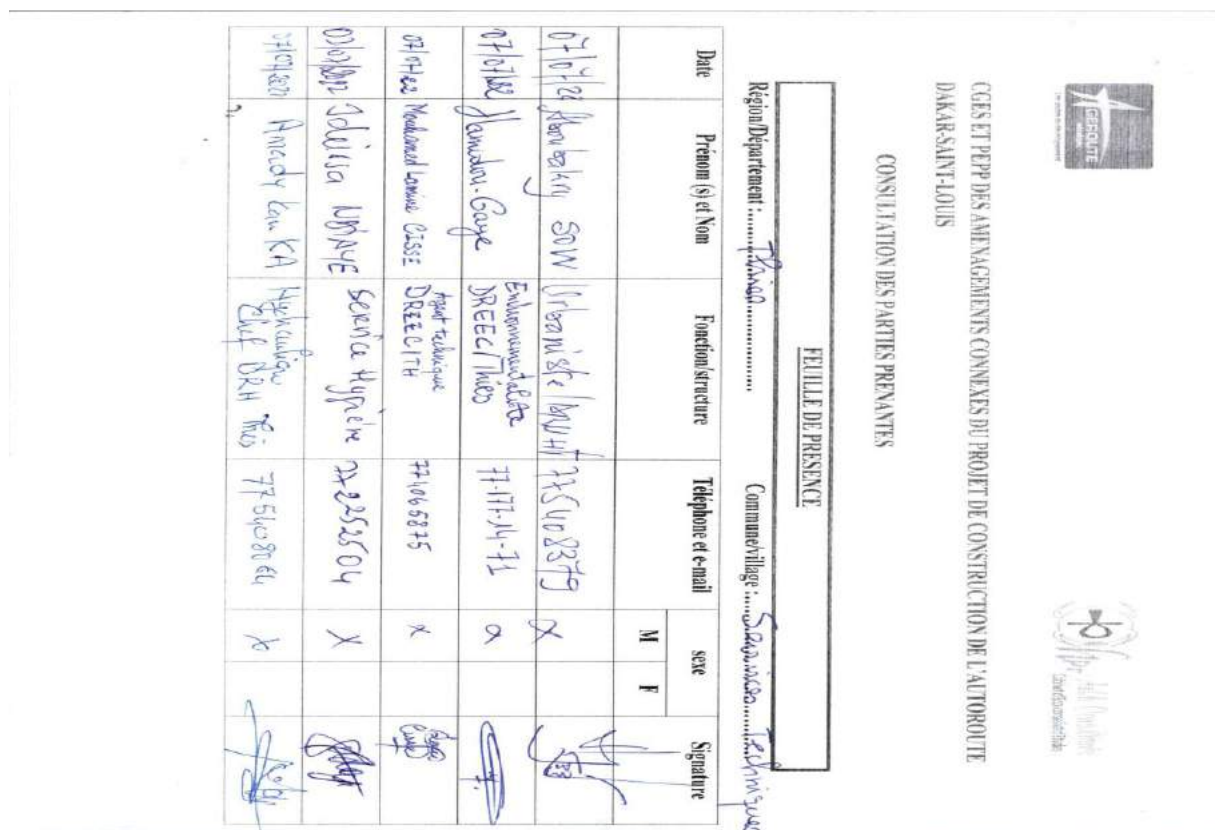 AGEROUTE
CGES ET PEPP DES AMENAGEMENTS CONNEXES DU PROJET DE CONSTRUCTION DE L'AUTOROUTE
DAKAR-SAINT-LOUIS
CONSULTATION DES PARTIES PRENANTES
FEUILLE DE PRESENCE
Région/Département : Thies Commune/village : Services Techniques
Date Prénom (s) et Nom Fonction/structure Téléphone et e-mail sexe Signature
M F
07/07/22 Aboubakry SOW Urbaniste/ 775408379 X
07/07/22 Hamidou Gaye Environnementaliste DREEC/Thies 77-177-14-71 x
07/07/22 Mouhamed Lamine CISSE Agent technique DREEC/TH 774065875 x
07/07/2022 Idrissa NDIAYE Service Hygiène 772252504 X
07/07/2022 Amady KA Hydraulique Chef BRH Thiès 775408064 x